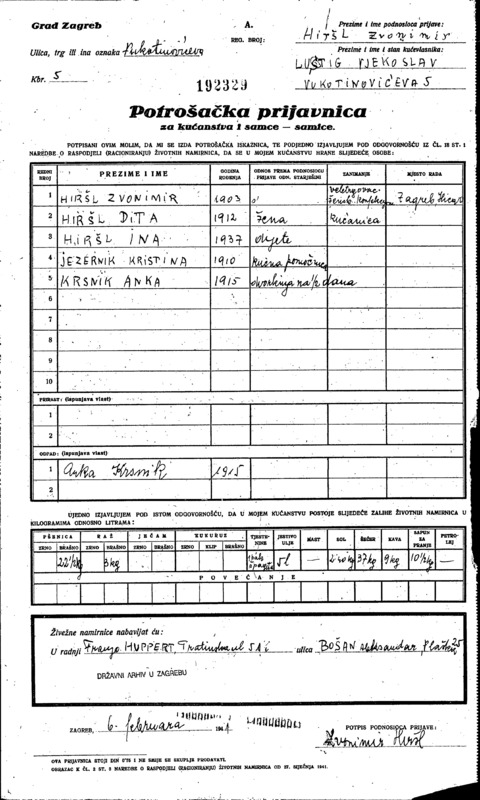 Grad Zagreb
A.
REG. BROJ:
Prezime i ime podnosioca prijave:
HIRŠL ZVONIMIR
Ulica, trg ili ina oznaka
Prezime i ime i stan kućevlasnika:
LUSTIG VJEKOSLAV
Kbr. 5
VUKOTINOVIĆEVA 5
192329
Potrošačka prijavnica
za kućanstva i samce — samice.
POTPISANI OVIM MOLIM, DA MI SE IZDA POTROŠAČKA ISKAZNICA, TE PODJEDNO IZJAVLJUJEM POD ODGOVORNOŠĆU IZ ČL. 18 ST. 1
NAREDBE O RASPODJELI (RACIONIRANJU) ŽIVOTNIH NAMIRNICA, DA SE U MOJEM KUĆANSTVU HRANE SLIJEDEĆE OSOBE:
REDNI BROJ PREZIME I IME GODINA ROĐENJA ODNOS PREMA PODNOSIOCU PRIJAVE ODN. STARJEŠINI ZANIMANJE MJESTO RADA
1 HIRŠL ZVONIMIR 1903 Zagreb
2 HIRŠL DITA 1912 žena kućanica
3 HIRŠL INA 1937 dijete
4 JEZERNIK KRISTINA 1910 kućna pomoćnica
5 KRSNIK ANKA 1915 dvorkinja na 1/2 dana
6
7
8
9
10
PRIRAST: (ispunjava vlast)
1
2
OTPAD: (ispunjava vlast)
1 Anka Krsnik 1915
2
UJEDNO IZJAVLJUJEM POD ISTOM ODGOVORNOŠĆU, DA U MOJEM KUĆANSTVU POSTOJE SLIJEDEĆE ZALIHE ŽIVOTNIH NAMIRNICA U
KILOGRAMIMA ODNOSNO LITRAMA:
PŠENICA RAŽ JEČAM KUKURUZ TJESTENINE JESTIVO ULJE MAST SOL ŠEĆER KAVA SAPUN ZA PRANJE PETROLEJ
ZRNO BRAŠNO ZRNO BRAŠNO ZRNO BRAŠNO ZRNO KLIP BRAŠNO
22 1/2 kg 3 kg 5l — 37 kg 9 kg 10 1/2 kg —
POVEĆANJE
Živežne namirnice nabavljat ću:
U radnji Franjo HUPPERT, ulica BOŠAN Aleksandar, 25
DRŽAVNI ARHIV U ZAGREBU
ZAGREB, 6. februara 1941
POTPIS PODNOSIOCA PRIJAVE:
Zvonimir Hiršl
OVA PRIJAVNICA STOJI DIN 0'75 I NE SMIJE SE SKUPLJE PRODAVATI.
OBRAZAC K ČL. 2 ST. 2 NAREDBE O RASPODJELI (RACIONIRANJU) ŽIVOTNIH NAMIRNICA (OD 27. SIJEČNJA 1941.